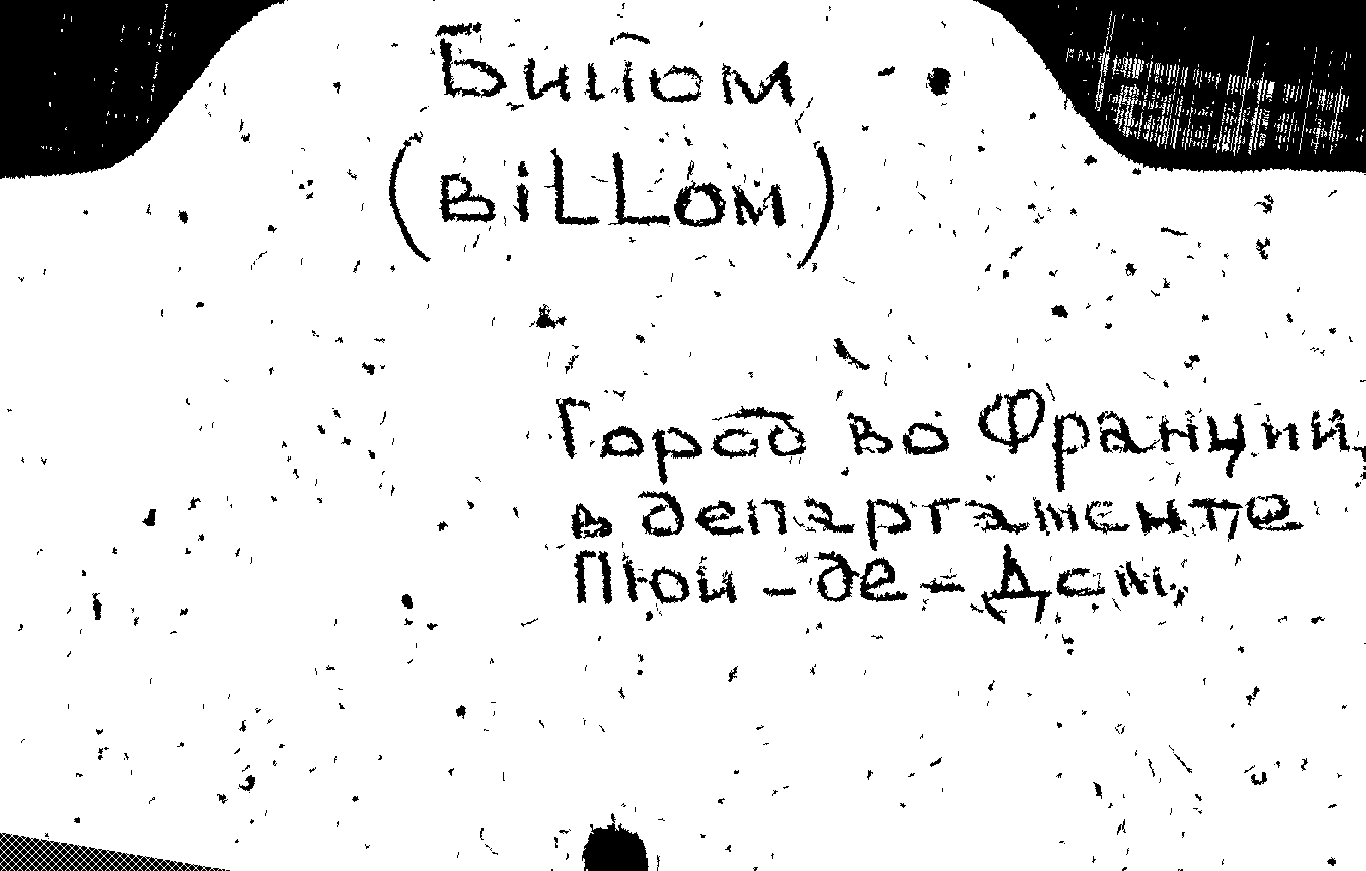 Бийом
(BiLLom)
Город во Франции,
в департаменте
Пюи-де-Дом,